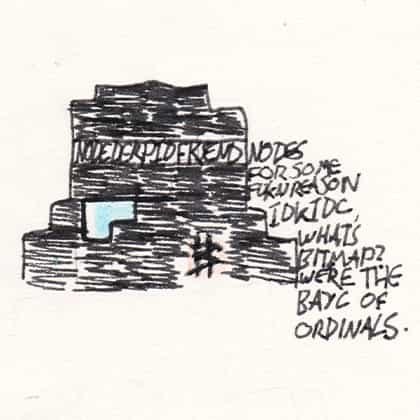 NODES
FOR SOME
FUKN REASON
IDKIDC,
WHATS
BITMAP?
WERE THE
BAYC OF
ORDINALS.
#